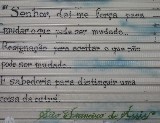 "Senhor, dai-me força para
mudar o que pode ser mudado...
Resignação para aceitar o que não
pode ser mudado...
E sabedoria para distinguir uma
coisa da outra."
São Francisco de Assis